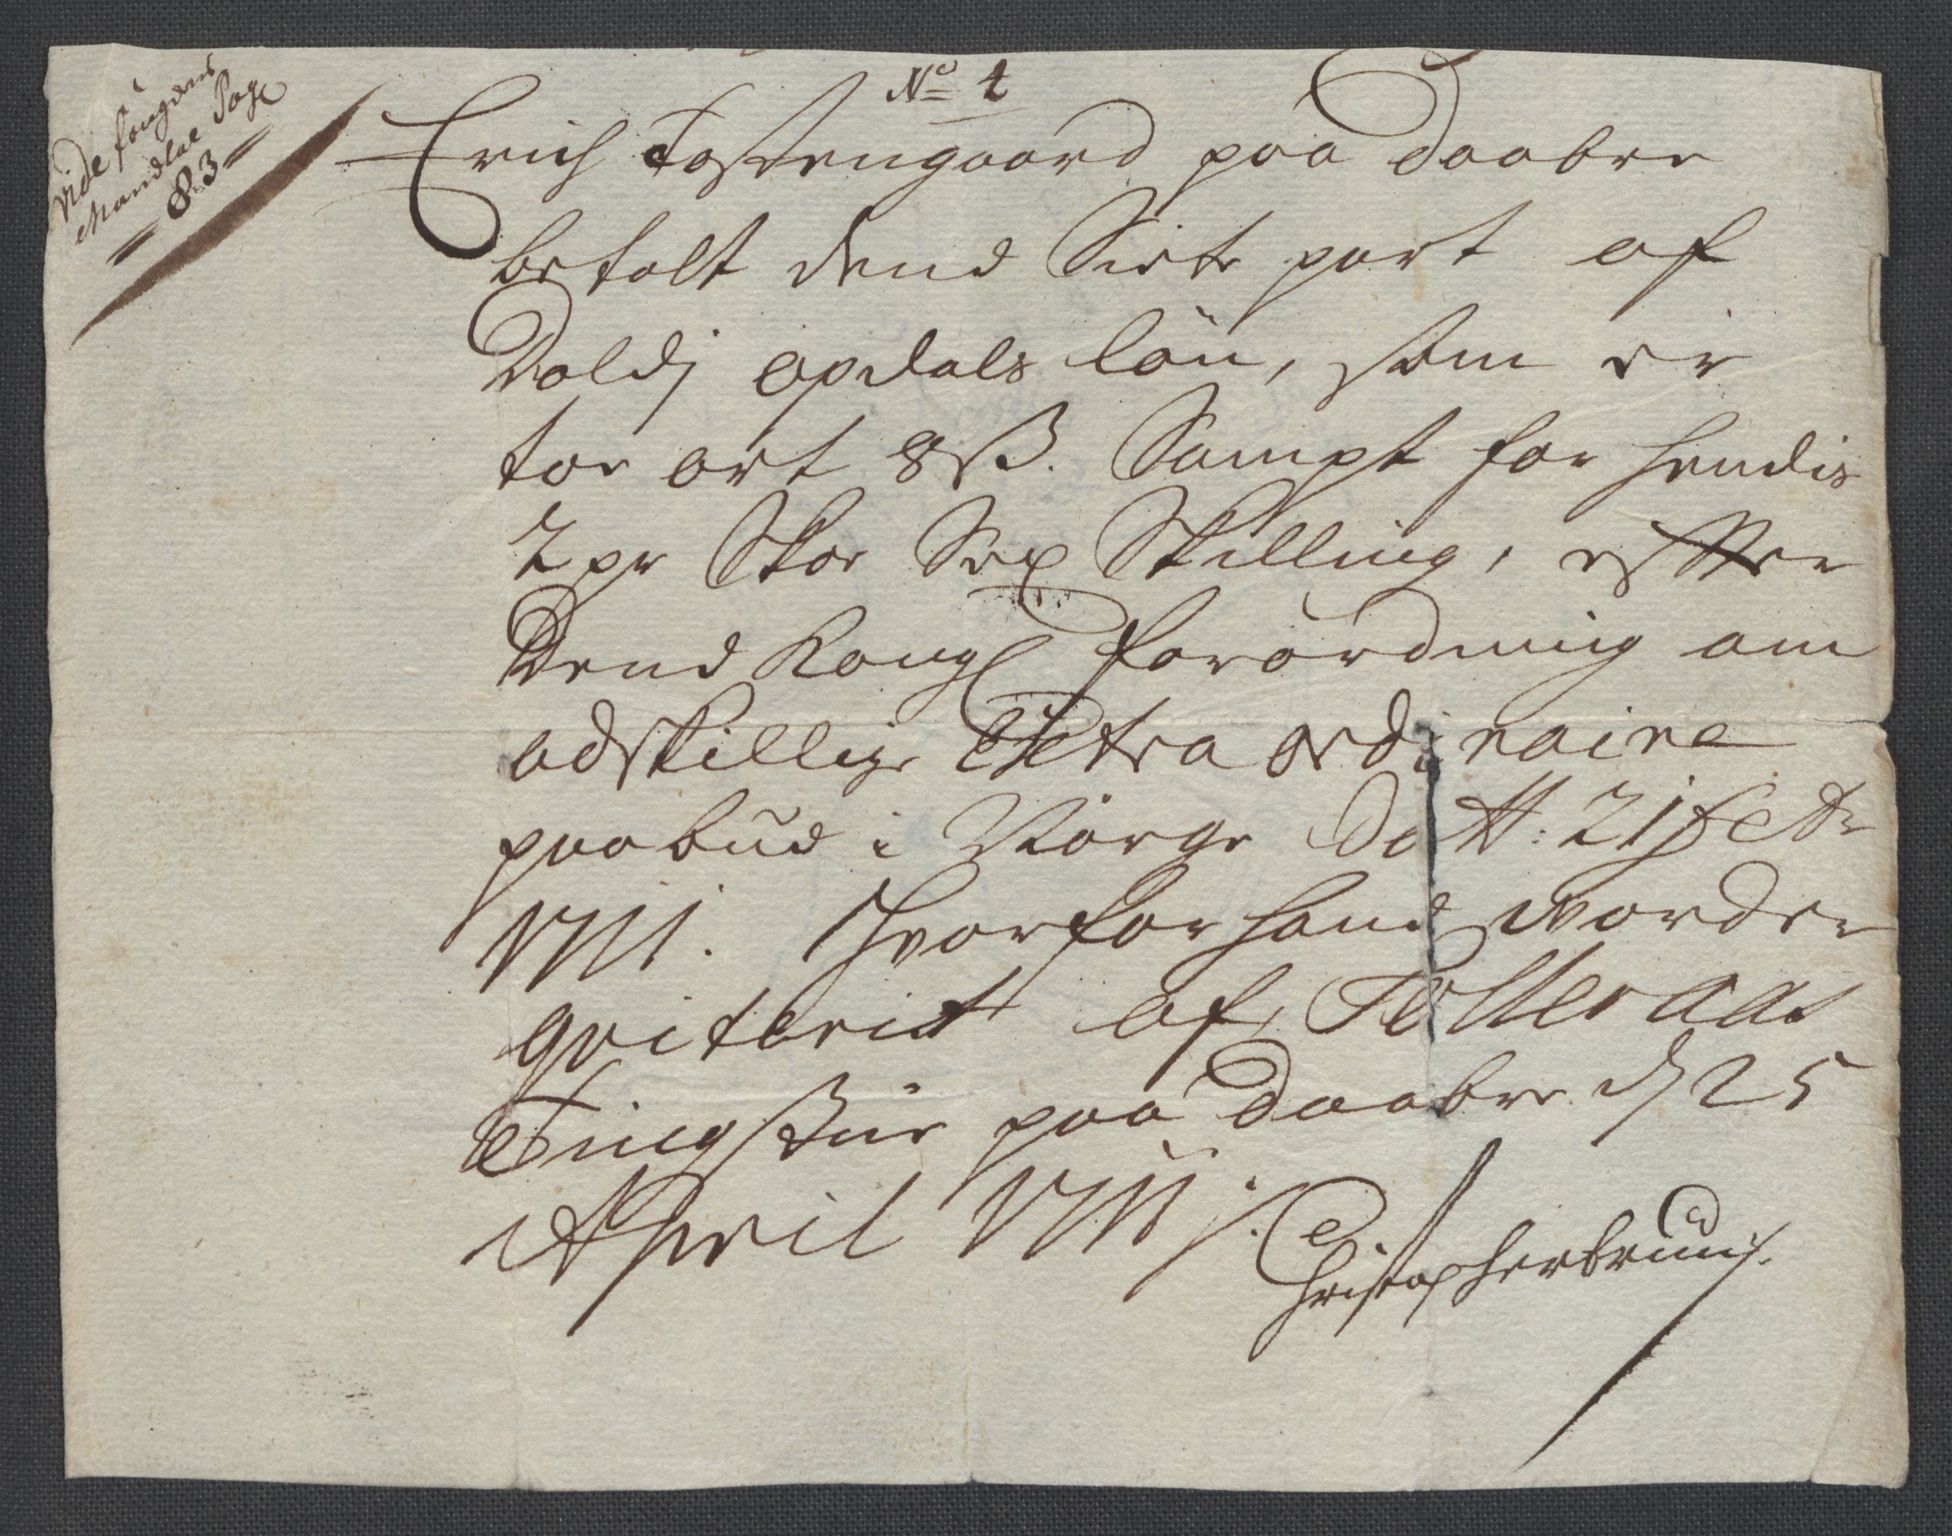 Vide fougdens
Mandtal Pag
83
No 1
Erich Tofftengaard paa Daabre
betalt dend Siete part af
Doldj opdals lön, som er
toe ort 8 ß. Sampt for hendis
2 pr Skoe Sex Skilling, effter
Dend Kongl forordning om
adskillige Extra ordinaire
paabud i Norge Datt: 21 febr
1711. Hvorfor hand vorder
qviterit af
Tingstue paa Daabre d 25
April 1711.
Christopher bruuis.